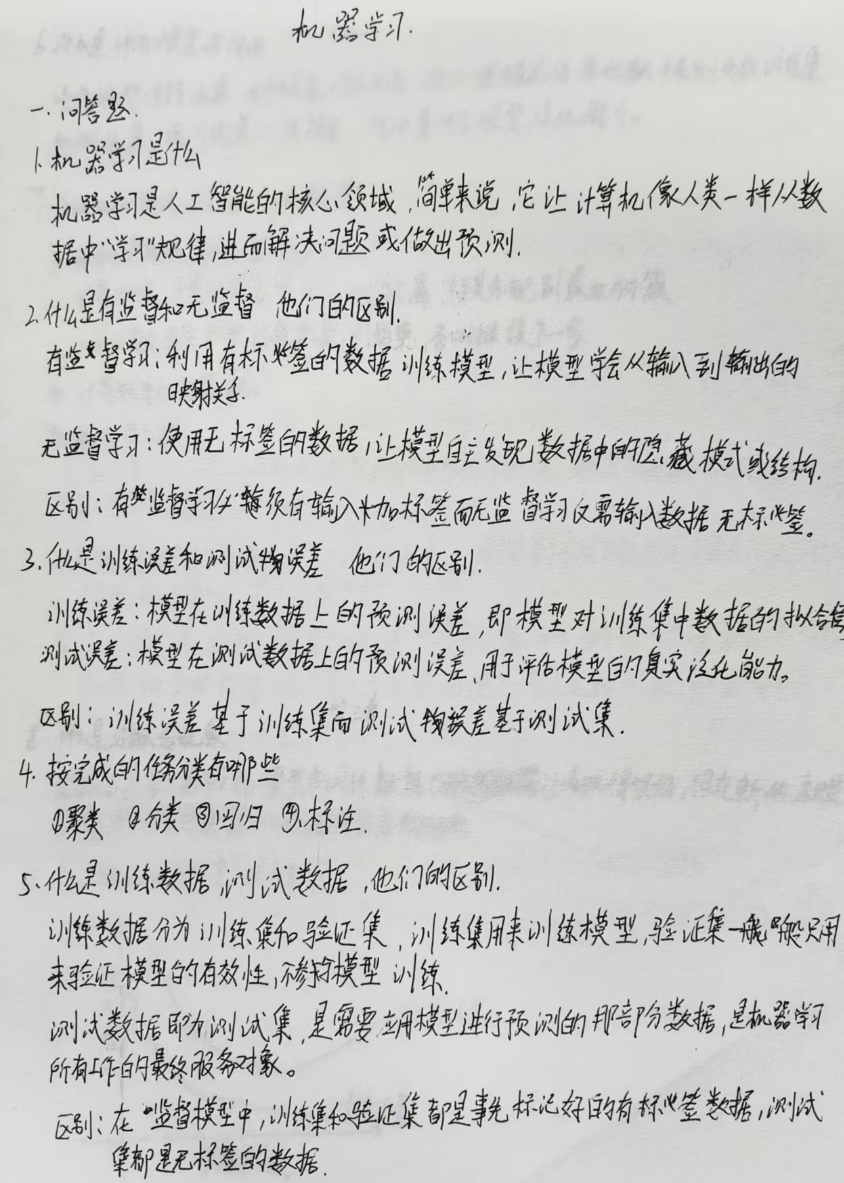 机器学习.
一.问答题.
1.机器学习是什么
机器学习是人工智能的核心领域,简单来说,它让计算机像人类一样从数
据中"学习"规律,进而解决问题或做出预测.
2.什么是有监督和无监督 他们的区别.
有监督学习:利用有标签的数据训练模型,让模型学会从输入到输出的
映射关系.
无监督学习:使用无标签的数据,让模型自主发现数据中的隐藏模式或结构.
区别:有监督学习必须有输入加标签而无监督学习仅需输入数据 无标签。
3.什么是训练误差和测试误差 他们的区别.
训练误差:模型在训练数据上的预测误差,即模型对训练集中数据的拟合
测试误差:模型在测试数据上的预测误差,用于评估模型的真实泛化能力。
区别:训练误差基于训练集而测试误差基于测试集.
4.按完成的任务分类有哪些
①聚类 ②分类 ③回归 ④标注.
5.什么是训练数据,测试数据,他们的区别.
训练数据分为训练集和验证集,训练集用来训练模型,验证集一般只用
来验证模型的有效性,不参与模型训练.
测试数据即为测试集,是需要应用模型进行预测的那部分数据,是机器学习
所有工作的最终服务对象。
区别:在监督模型中,训练集和验证集都是事先标记好的有标签数据,测试
集都是无标签的数据.